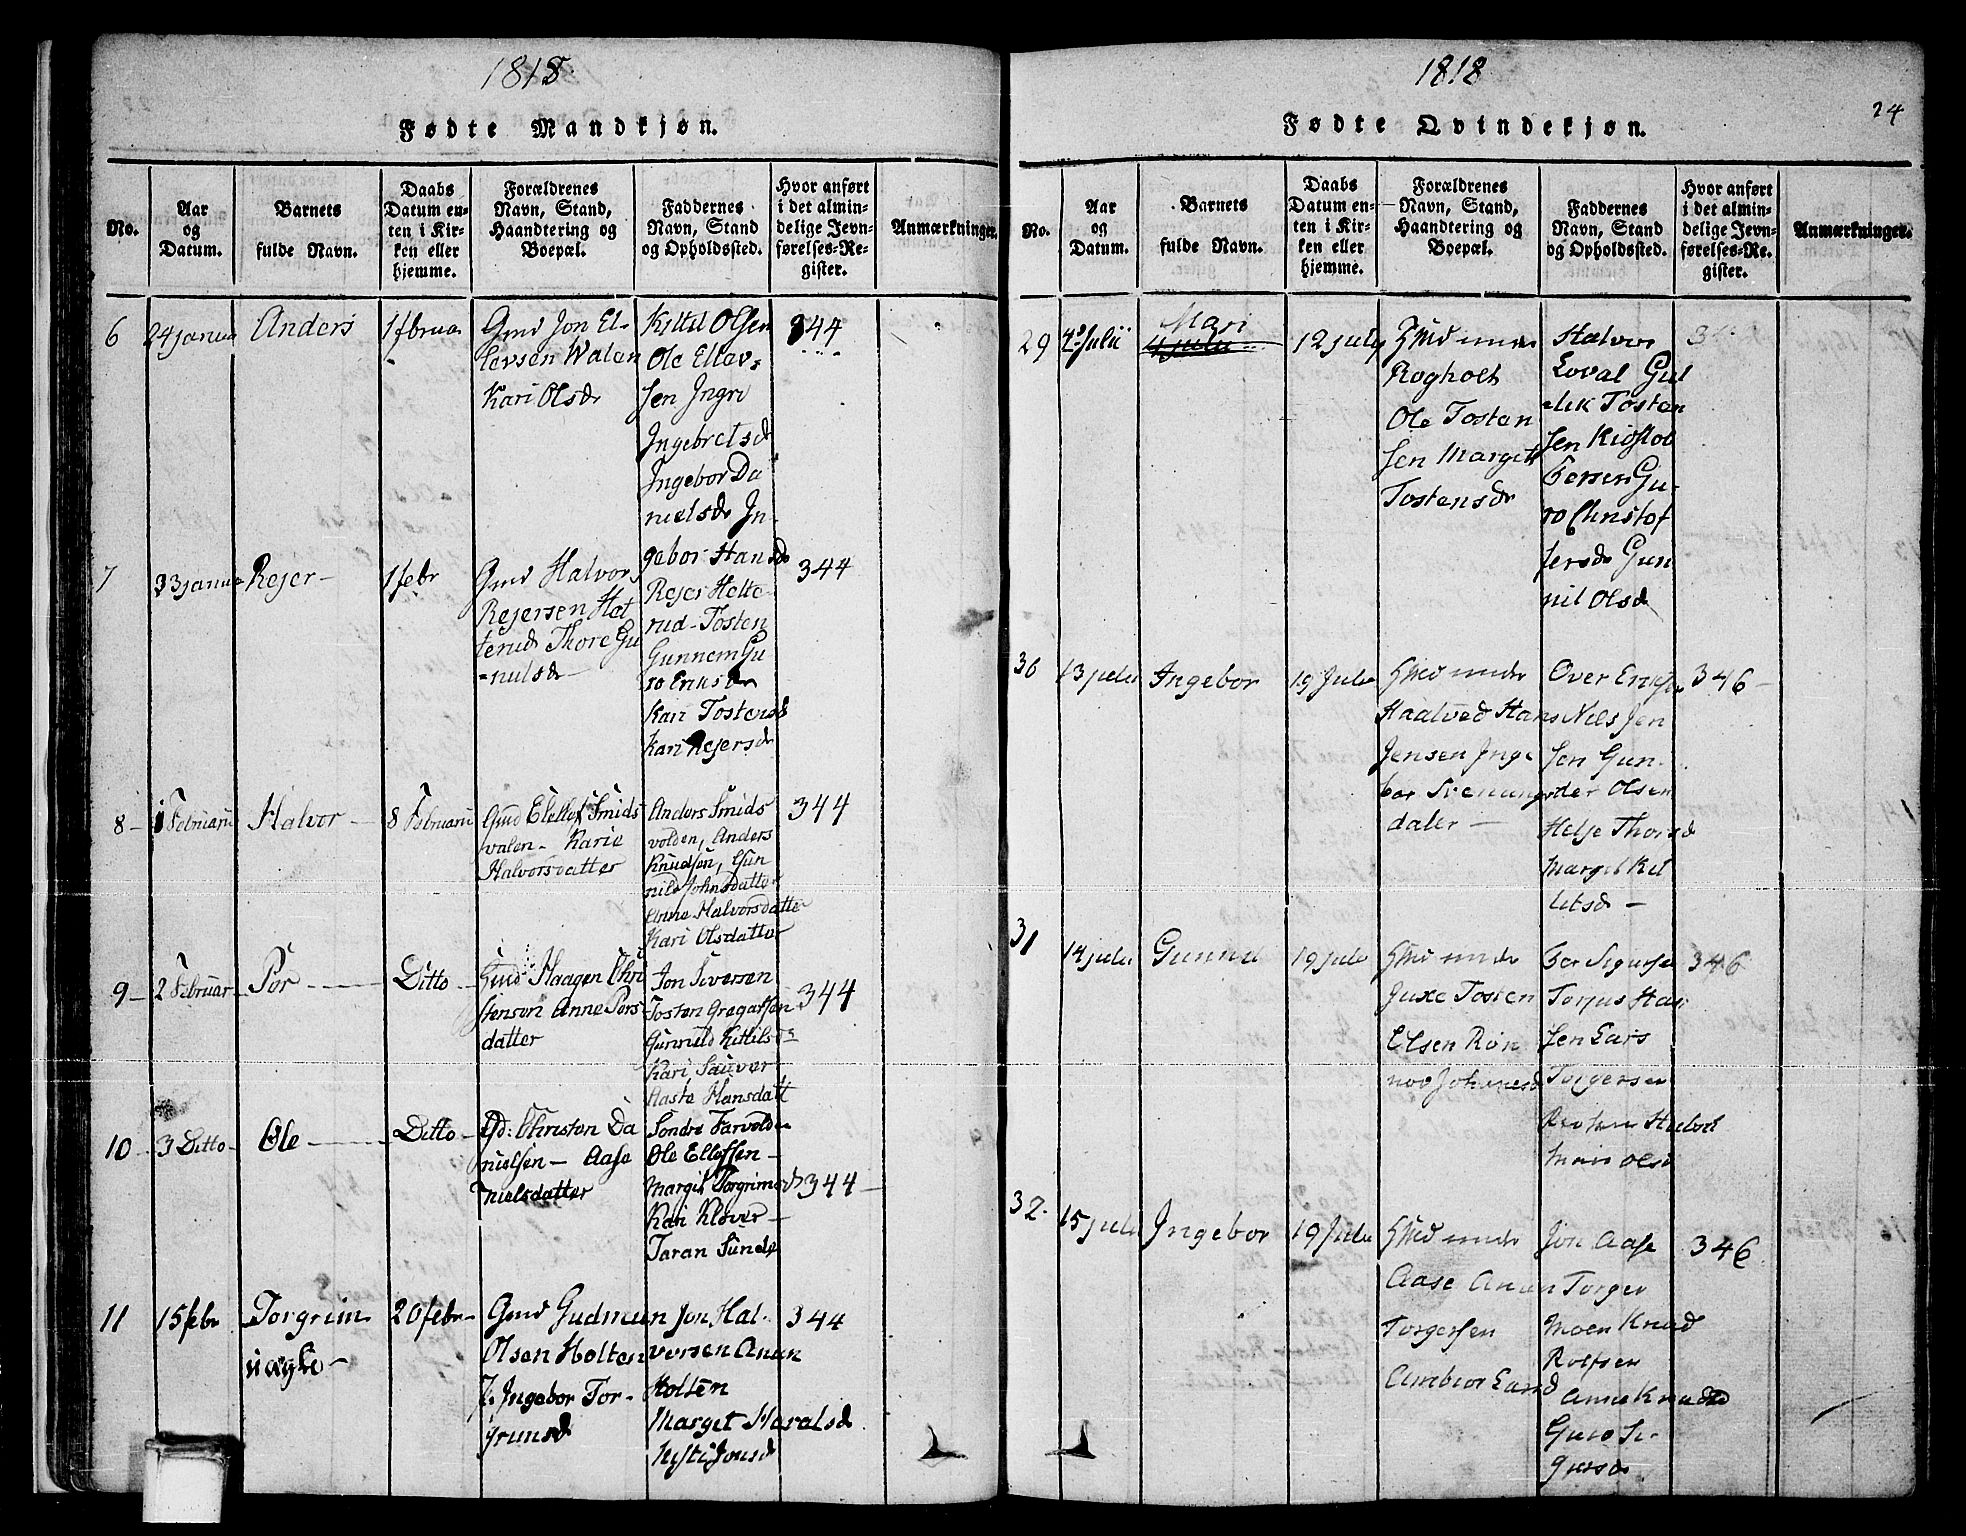 1818
Fødte Mandkjøn.
No.
Aar
og
Datum.
Barnets
fulde Navn.
Daabs
Datum en-
ten i Kir-
ken eller
hjemme.
Forældrenes
Navn, Stand,
Haandtering og
Boepæl.
Faddernes
Navn, Stand
og Opholdssted.
Hvor anført
i det almin-
delige Jevn-
førelses-Re-
gister.
Anmærkninger.
6
24 janua
Anders
1 fbrua
Gmd Jon El-
levsen Walen
Kari Olsd
Kittil Olsen
Ole Ellev-
sen Ingri
Ingebretsd
Ingebor Da
nielsd In-
gebor Hansd
344
7
janua
Rejer-
1 febr
Gmd Halvor
Rejersen Het
terud Thore Gu
-nulsd
Rejer Hette-
rud-Tosten
Gunnem Gu
ro Eriksd
Kari Tostensd
Kari Rejersd
344
8-
1 Februari
Halvor-
8 Februari
Gmd Ellef Smids
valen- Karie
Halvorsdatter
Anders Smids
volden, Anders
Knudsen, Gun
nild Johnsdatter
Anne Halvorsdatter
Kari Olsdatter
344
9-
2 Februar
Por
Ditto
Gmd Haagen Chri
stensen Anne Pers
datter
Jon Siversen
Tosten Gregarsen
Gunnild Kittilsd
Kari Sauvar
Aaste Hansdatt
344
10
3 Ditto-
Ole
Ditto-
Christen Da
nielsen- Aase
nielsdatter
Sondre Farvolden
Ole Ellefsen-
Margit Torgrimsd
Kari Kløver-
Taran Sunde
344-
11
15 febr
Torgrim
20 febr-
Gmd Gudmun
Olsen Holten
Ingebor Tor-
grimsd
Jon Hal-
versen Anun
Holten
Marget Haralsd
Kisti Jonsd
344
1818
24
Fødte Qvindekjøn.
No.
Aar
og
Datum.
Barnets
fulde Navn.
Daabs
Datum en-
ten i Kir-
ken eller
hjemme.
Forældrenes
Navn, Stand,
Haandtering og
Boepæl.
Faddernes
Navn, Stand
og Opholdssted.
Hvor anført
i det almin-
delige Jevn-
førelses-Re-
gister.
Anmærkninger.
29
Julii
Mari
12 july
Rogholt
Ole Tosten
sen Marget
Tostensd
Halvor
Loval Gul
-lik Tosten
sen
Gu-
ro Christof
fersd Gun
nil Olsd
30
13 juli
Ingebor
19 Juli
Haatved Hans
Jensen Inge
bor Svenungs
dater-
Over
Nels Jen
sen Gun-
der Olsen
Helje Thorsd
Marget Kit
letsd-
346-
31
14 juli
Gunnil
19 juli
Juxe Tosten
Olsen Ron
nov Johnnesd
Torjus Han
sen Lars
Torgersen
Mari Olsd
346
32.
15 juli
Ingebor
19 Juli
Aase Anun
Torgersen
Ambior Land
Jon Aase
Torger
Moen Knud
Rolfsen
Anne Knudsd
Guro Si-
gursd
346